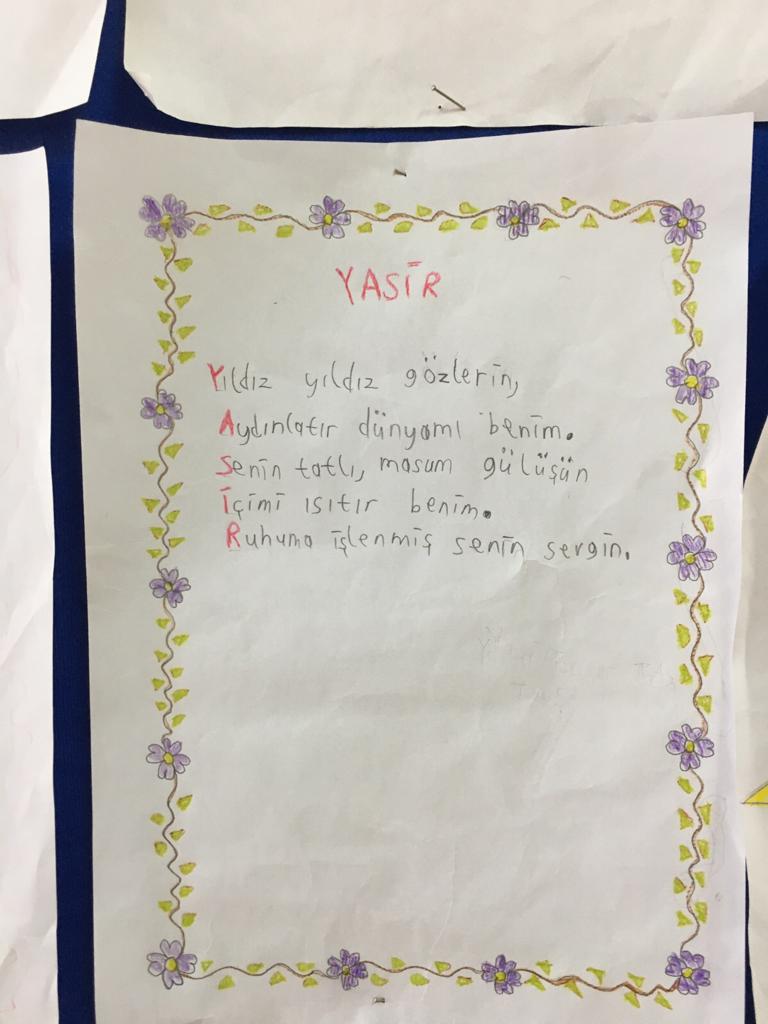 YASİR
Yıldız yıldız gözlerin,
Aydınlatır dünyamı benim.
Senin tatlı, masum gülüşün
İçimi ısıtır benim.
Ruhuma işlenmiş senin sergin.